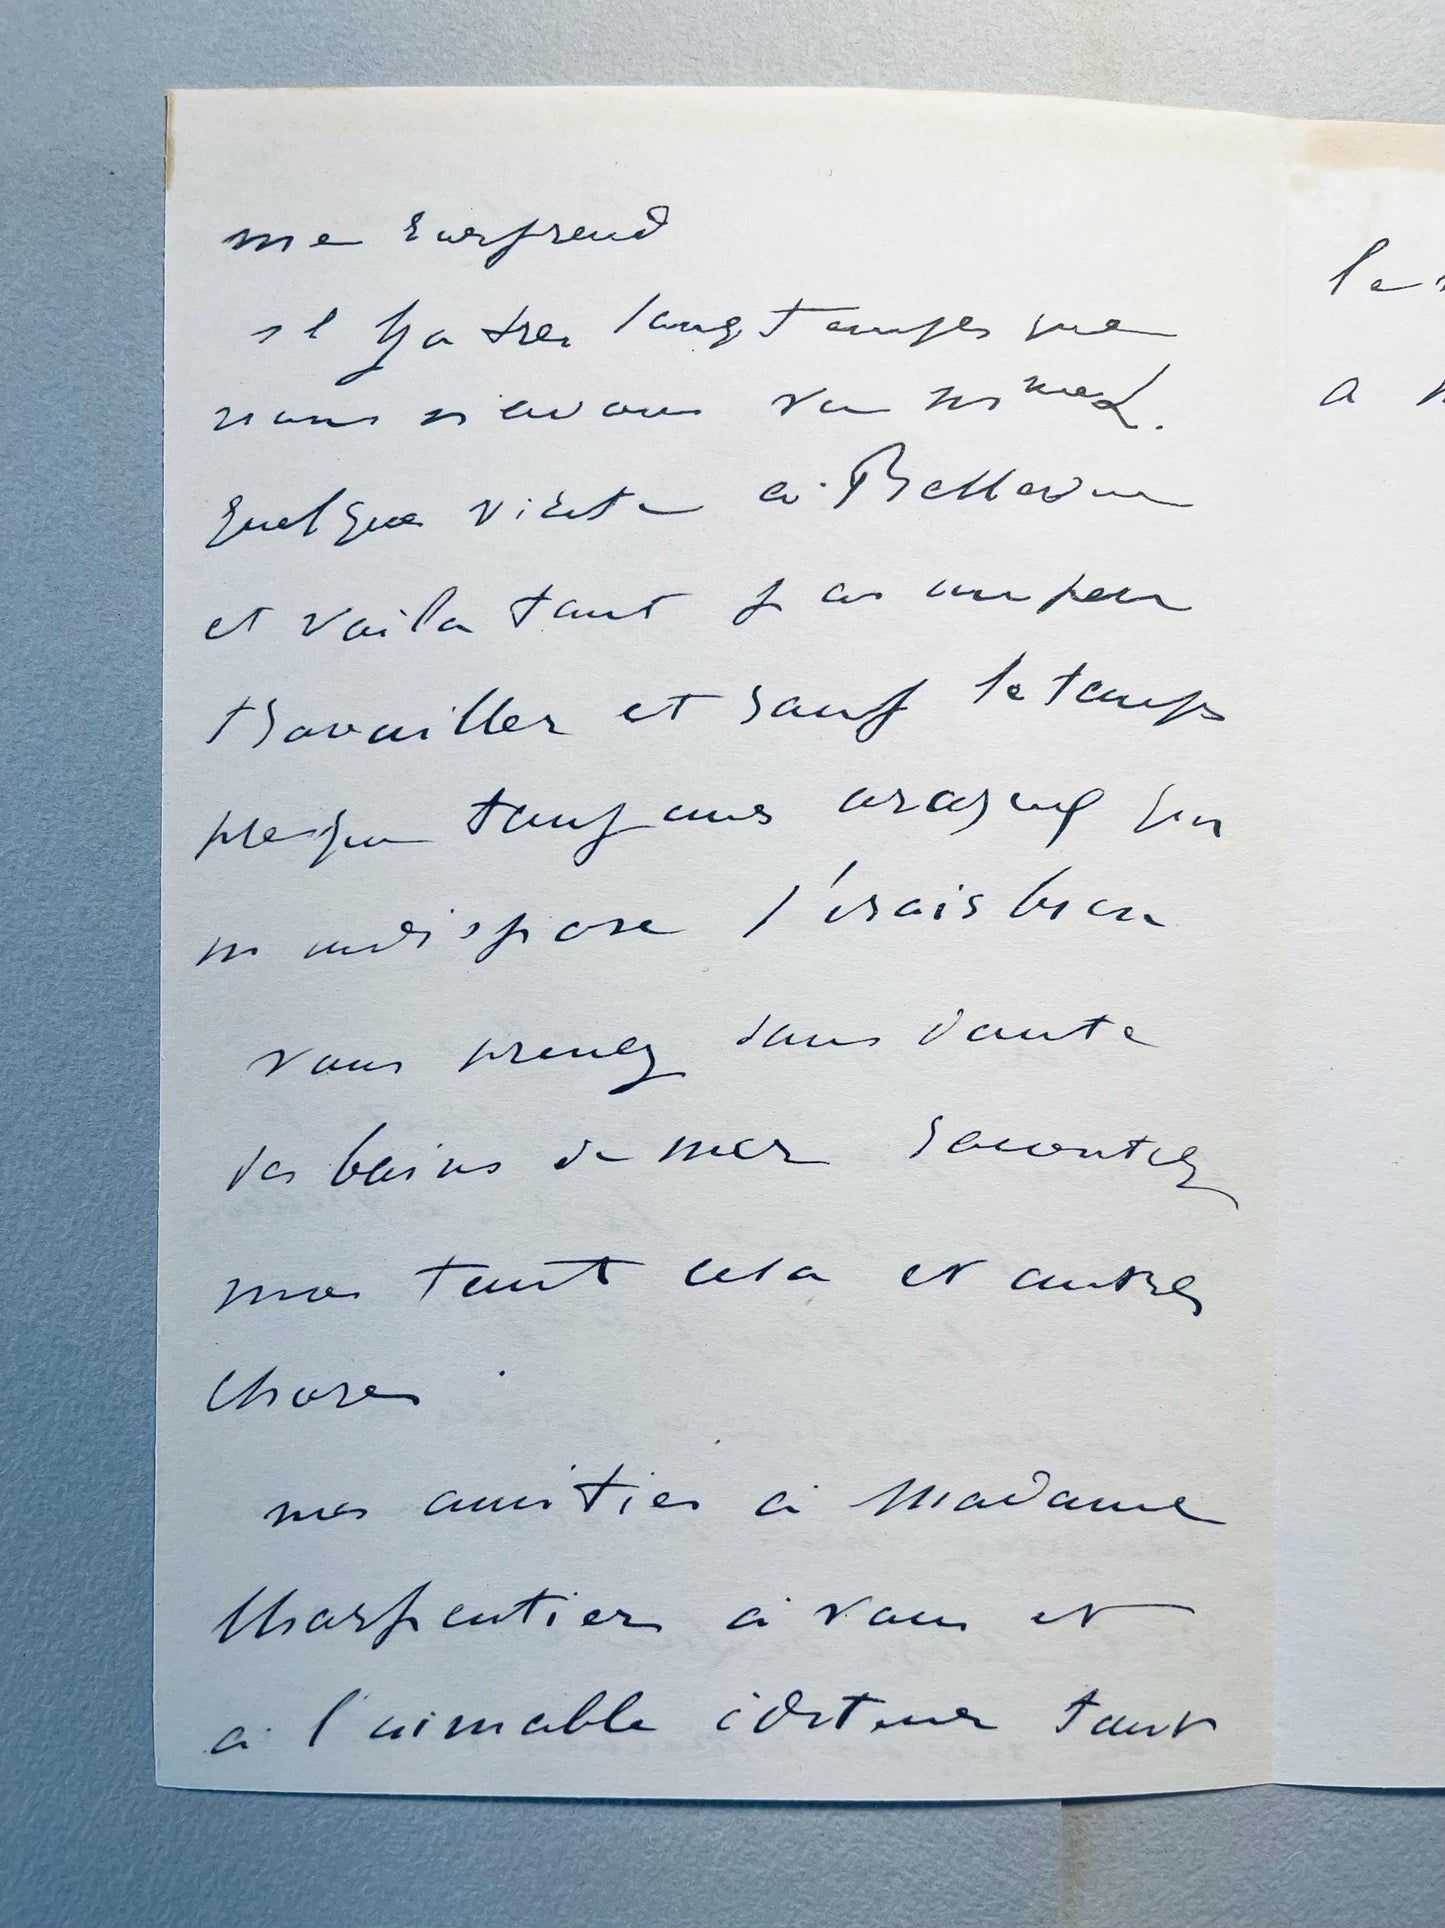 me surprend
il y a tres longtemps que
nous n'avons vu M
quelque visite a Bellevue
et voila tout j ai un peu
travailler et sauf le temps
presque toujours orageux qui
m indispose j'irais bien
vous prenez sans doute
des bains de mer racontez
moi tout cela et autres
choses
mes amities à Madame
Charpentier à vous et
à l'aimable éditeur tout
le
a